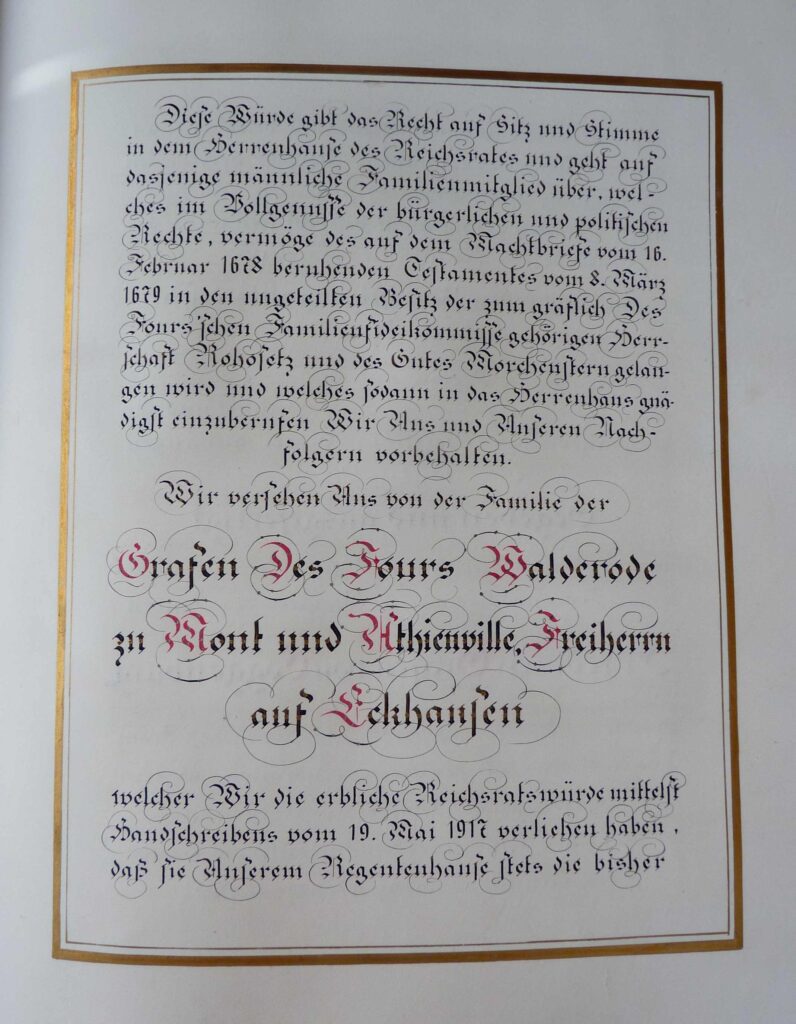 Diese Würde gibt das Recht auf Sitz und Stimme
in dem Herrenhause des Reichsrates und geht auf
dasjenige männliche Familienmitglied über, wel-
ches im Vollgenusse der bürgerlichen und politischen
Rechte, vermöge des auf dem Machtbriefe vom 16.
Februar 1678 beruhenden Testamentes vom 8. März
1679 in den ungeteilten Besitz der zum gräflich Des
Fours'schen Familienfideikommisse gehörigen Herr-
schaft Rohosetz und des Gutes Morchenstern gelan-
gen wird und welches sodann in das Herrenhaus gnä-
digst einzuberufen Wir Uns und Unseren Nach-
folgern vorbehalten.
Wir versehen Uns von der Familie der
Grafen Des Fours Walderode
zu Mont und Athienville, Freiherrn
auf Eckhausen
welcher Wir die erbliche Reichsratswürde mittelst
Handschreibens vom 19. Mai 1917 verliehen haben,
daß sie Unserem Regentenhause stets die bisher